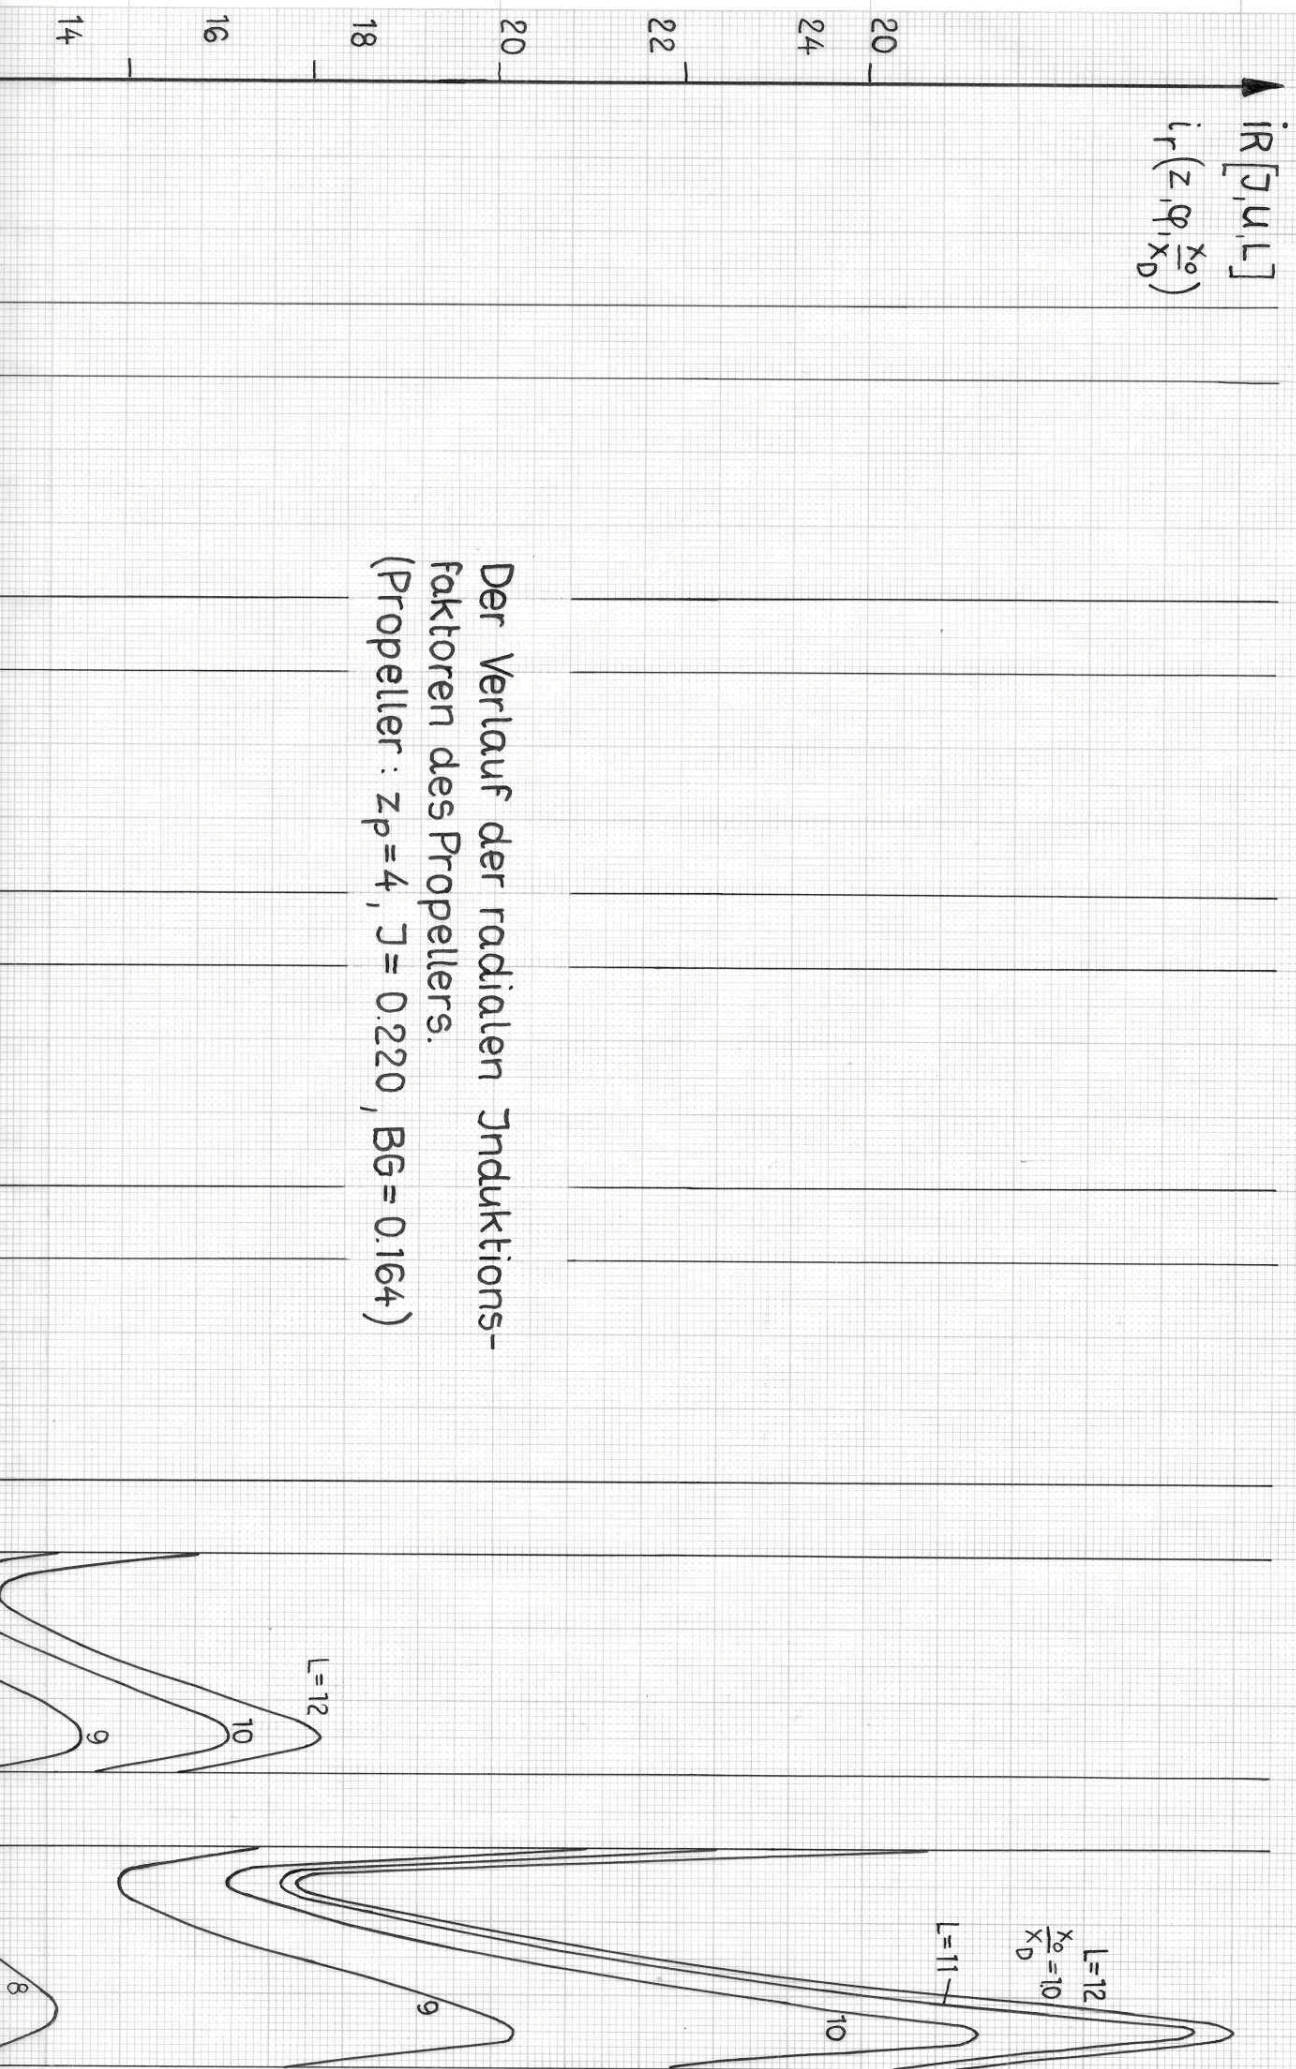 iR[J,U,L]
i_r(z,φ,x_0/x_D)
20
24
22
20
18
16
14
Der Verlauf der radialen Induktions-
faktoren des Propellers.
(Propeller: z_p=4, J=0.220, BG=0.164)
L=12
10
9
L=12
x_0/x_D=1.0
L=11
10
9
8